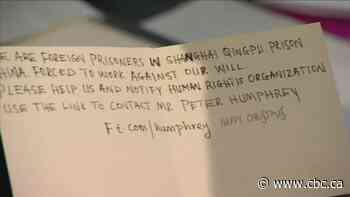 E ARE FOREIGN PRISONERS IN SHANGHAI QINGPU PRISON
HINA FORCED TO WORK AGAINST OUR WILL.
PLEASE HELP US AND NOTIFY HUMAN RIGHTS ORGANIZATION
USE THE LINK TO CONTACT MR PETER HUMPHREY
Ft.com/humphrey
www.cbc.ca